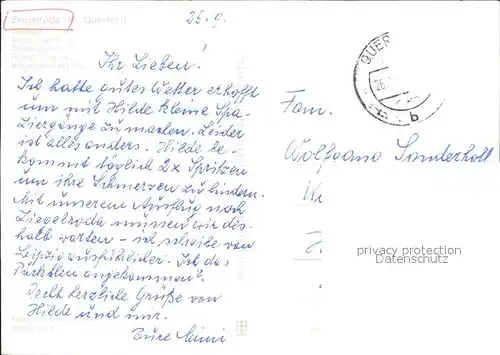 Ziegelroda (Kr. Querfurt)
25.9.
QUER
26.
b
Ihr Lieben.
Ich hatte gutes Wetter erhofft
um mit Hilde kleine Spa-
ziergänge zu machen. Leider
ist alles anders. Hilde be-
kommt täglich 2x Spritzen
um ihre Schmerzen zu lindern.
Mit unserem Ausflug nach
Ziegelroda müssen wir des-
halb warten – ich schreibe von
Leipzig ausführlicher. Ist das
Päckchen angekommen?
Recht herzliche Grüße von
Hilde und mir.
Eure
Fam.
Wolfgang Sonderhoff
privacy protection
Datenschutz